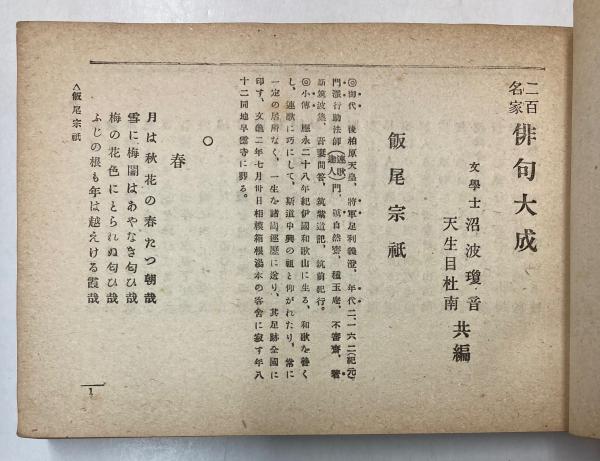 二百名家 俳句大成
文學士 沼波瓊音
天生目杜南 共編
飯尾宗祇
◎御代 後柏原天皇、將軍足利義澄、年代二、一六二(紀元)
門 漢行助法師(連歌達人)門、號自然齋、種玉庵、不審齋、著
新筑波集、吾妻問答、筑紫道記、筑前紀行。
◎小傳 應永二十八年紀伊國和歌山に生る、和歌を善く
し、連歌に巧にして、斯道中興の祖と仰がれたり、常に
一定の居所なく、一生を諸國遍歷に送り、其足跡全國に
印す、文龜二年七月卅日相模箱根湯本の客舍に寂す年八
十二同地早雲寺に葬る。
○
春
月は秋花の春たつ朝哉
雪に梅闇はあやなき匂ひ哉
梅の花色にとられぬ匂ひ哉
ふじの根も年は越えける霞哉
〈飯尾宗祇
1